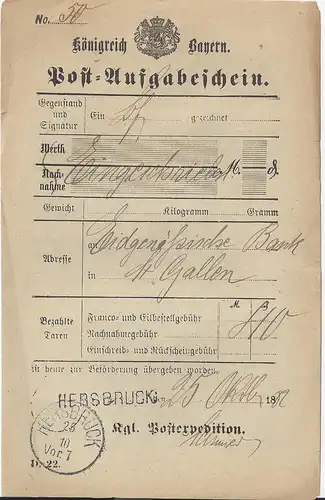 No. 50
Königreich Bayern.
Post-Aufgabeschein.
Gegenstand und Signatur
Ein Bf gezeichnet
Werth
Nach-nahme
M. ₰.
Gewicht Kilogramm Gramm
Adresse
an Eidgenössische Bank
in St Gallen
M. ₰
Bezahlte Taxen
Franco- und Eilbestellgebühr
Nachnahmegebühr
Einschreib- und Rückscheingebühr
ist heute zur Beförderung übergeben worden.
HERSBRUCK 25 Oktb 188
HERSBRUCK
25
10
Vor. 7
Kgl. Postexpedition.
D. 22.